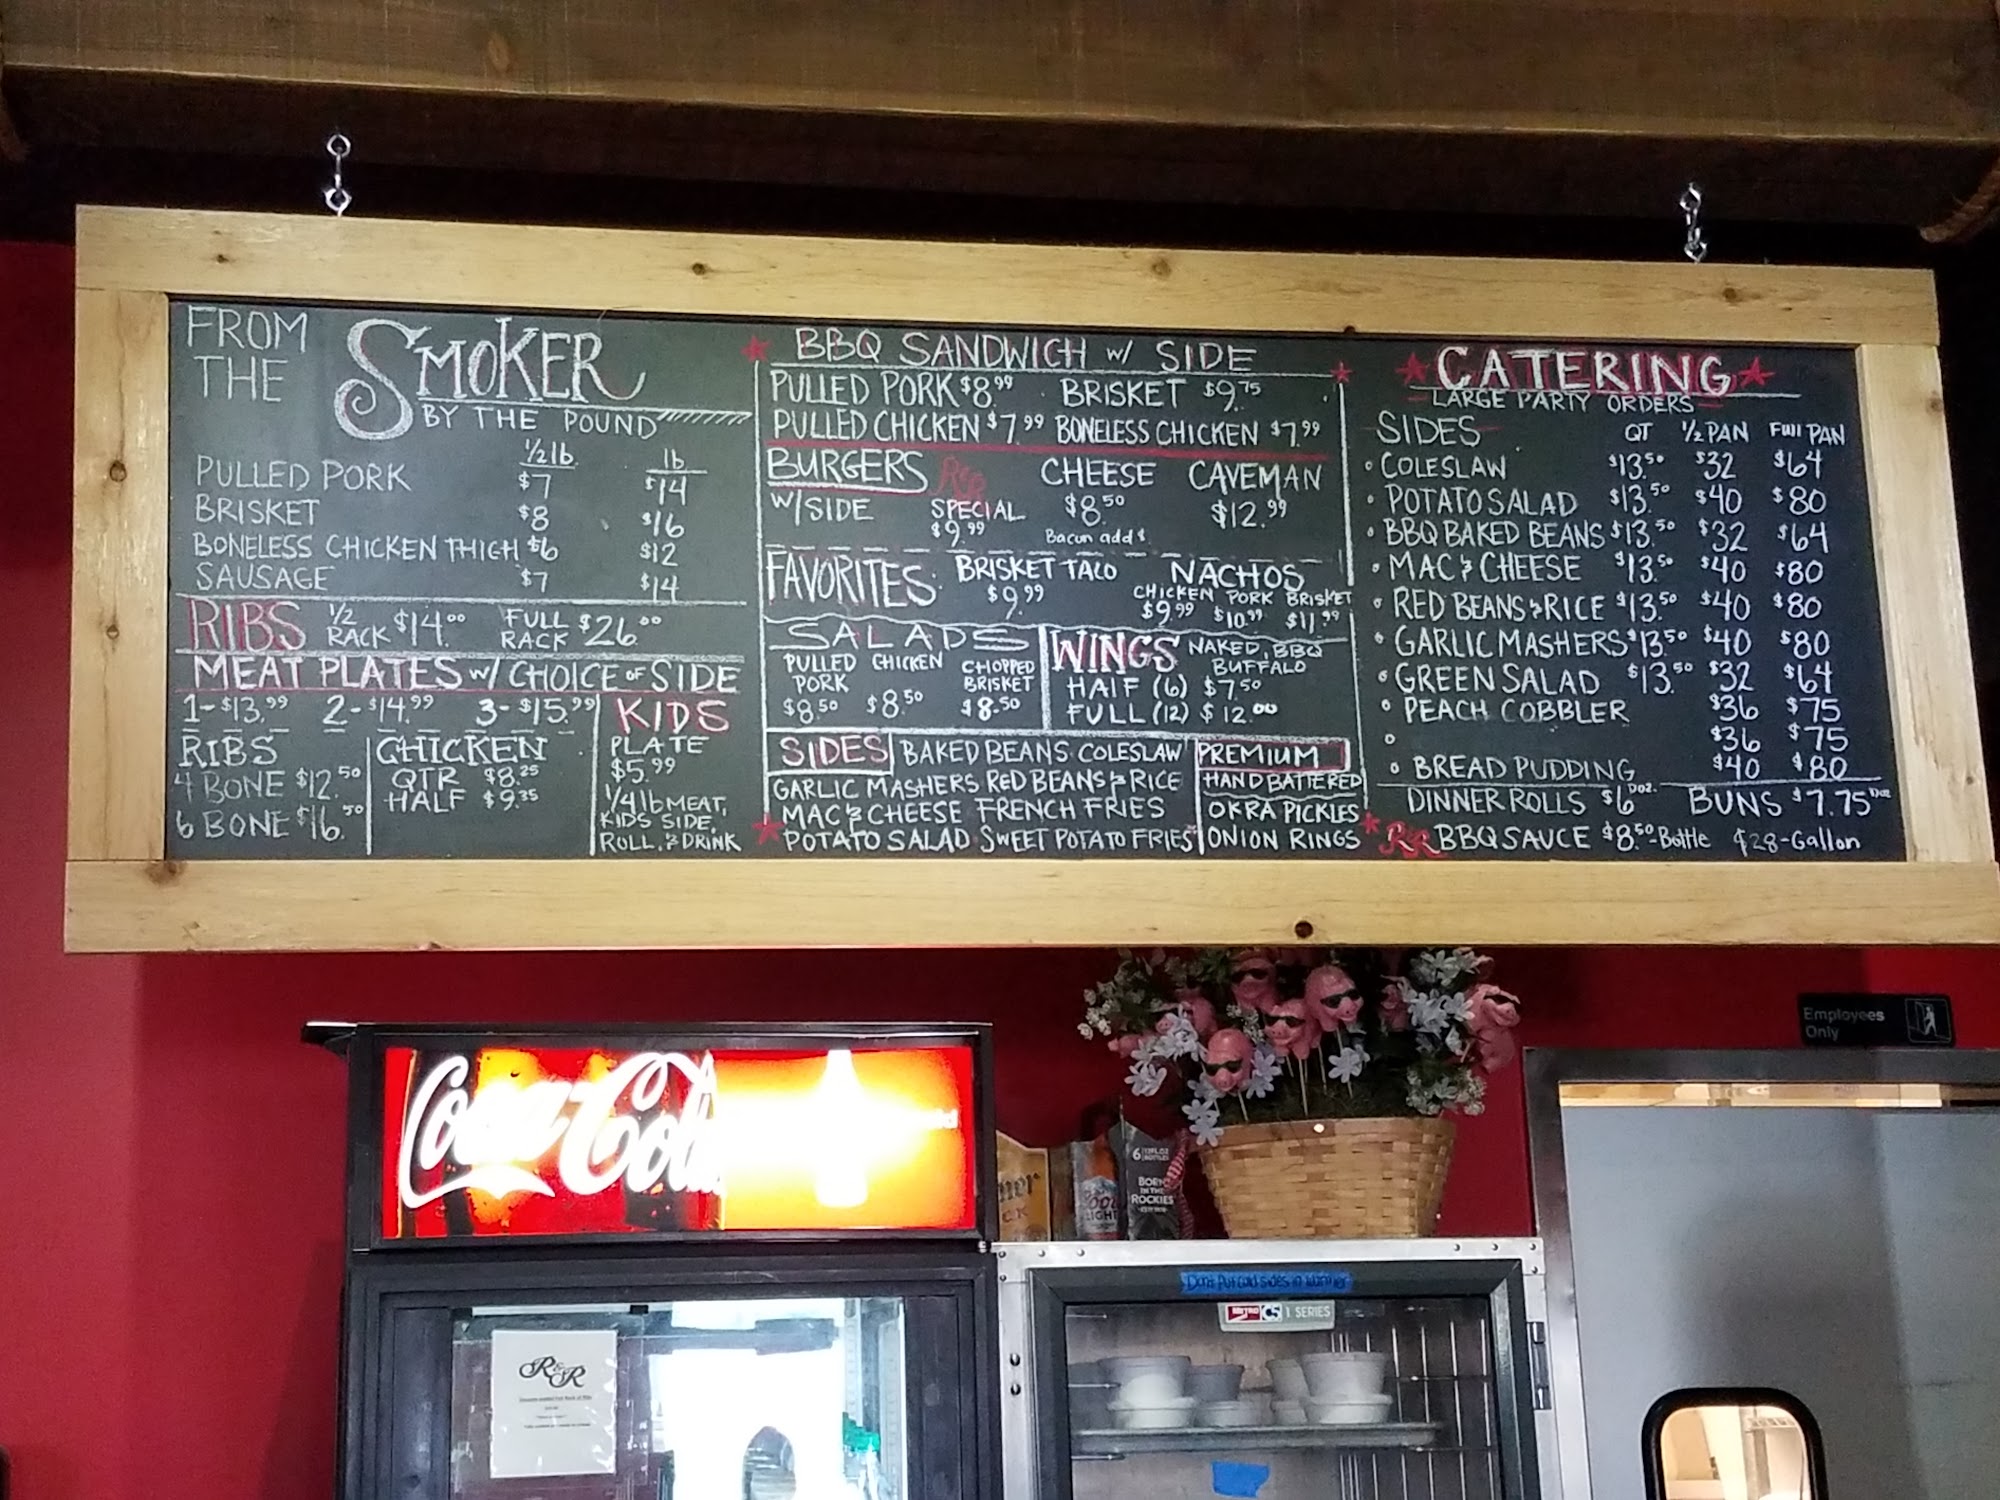 FROM THE SMOKER
BY THE POUND
1/2 lb lb
PULLED PORK $7 $14
BRISKET $8 $16
BONELESS CHICKEN THIGH $6 $12
SAUSAGE $7 $14
RIBS 1/2 RACK $14.00 FULL RACK $26.00
MEAT PLATES W/ CHOICE OF SIDE
1-$13.99 2-$14.99 3-$15.99
RIBS
4 BONE $12.50
6 BONE $16.50
CHICKEN
QTR $8.25
HALF $9.35
KIDS
PLATE
$5.99
1/4 lb MEAT,
KIDS SIDE,
ROLL, & DRINK
BBQ SANDWICH W/ SIDE
PULLED PORK $8.99 BRISKET $9.75
PULLED CHICKEN $7.99 BONELESS CHICKEN $7.99
BURGERS W/SIDE
RR SPECIAL $9.99
CHEESE $8.50
Bacon add $
CAVEMAN $12.99
FAVORITES: BRISKET TACO $9.99
NACHOS
CHICKEN PORK BRISKET
$9.99 $10.99 $11.99
SALADS
PULLED PORK $8.50
CHICKEN $8.50
CHOPPED BRISKET $8.50
WINGS NAKED, BBQ BUFFALO
HALF (6) $7.50
FULL (12) $12.00
SIDES BAKED BEANS COLESLAW
GARLIC MASHERS RED BEANS & RICE
MAC & CHEESE FRENCH FRIES
POTATO SALAD SWEET POTATO FRIES
PREMIUM
HAND BATTERED
OKRA PICKLES
ONION RINGS
CATERING
LARGE PARTY ORDERS
SIDES QT 1/2 PAN Full PAN
• COLESLAW $13.50 $32 $64
• POTATO SALAD $13.50 $40 $80
• BBQ BAKED BEANS $13.50 $32 $64
• MAC & CHEESE $13.50 $40 $80
• RED BEANS & RICE $13.50 $40 $80
• GARLIC MASHERS $13.50 $40 $80
• GREEN SALAD $13.50 $32 $64
• PEACH COBBLER $36 $75
• $36 $75
• BREAD PUDDING $40 $80
DINNER ROLLS $6 DOZ. BUNS $7.75 DOZ
RR BBQ SAUCE $8.50-Bottle $28-Gallon
Employees
Only
Coca-Cola
6
BORN
IN THE
ROCKIES
LIGHT
Don't Put cold sides in warmer
METRO C5 1 SERIES
R&R